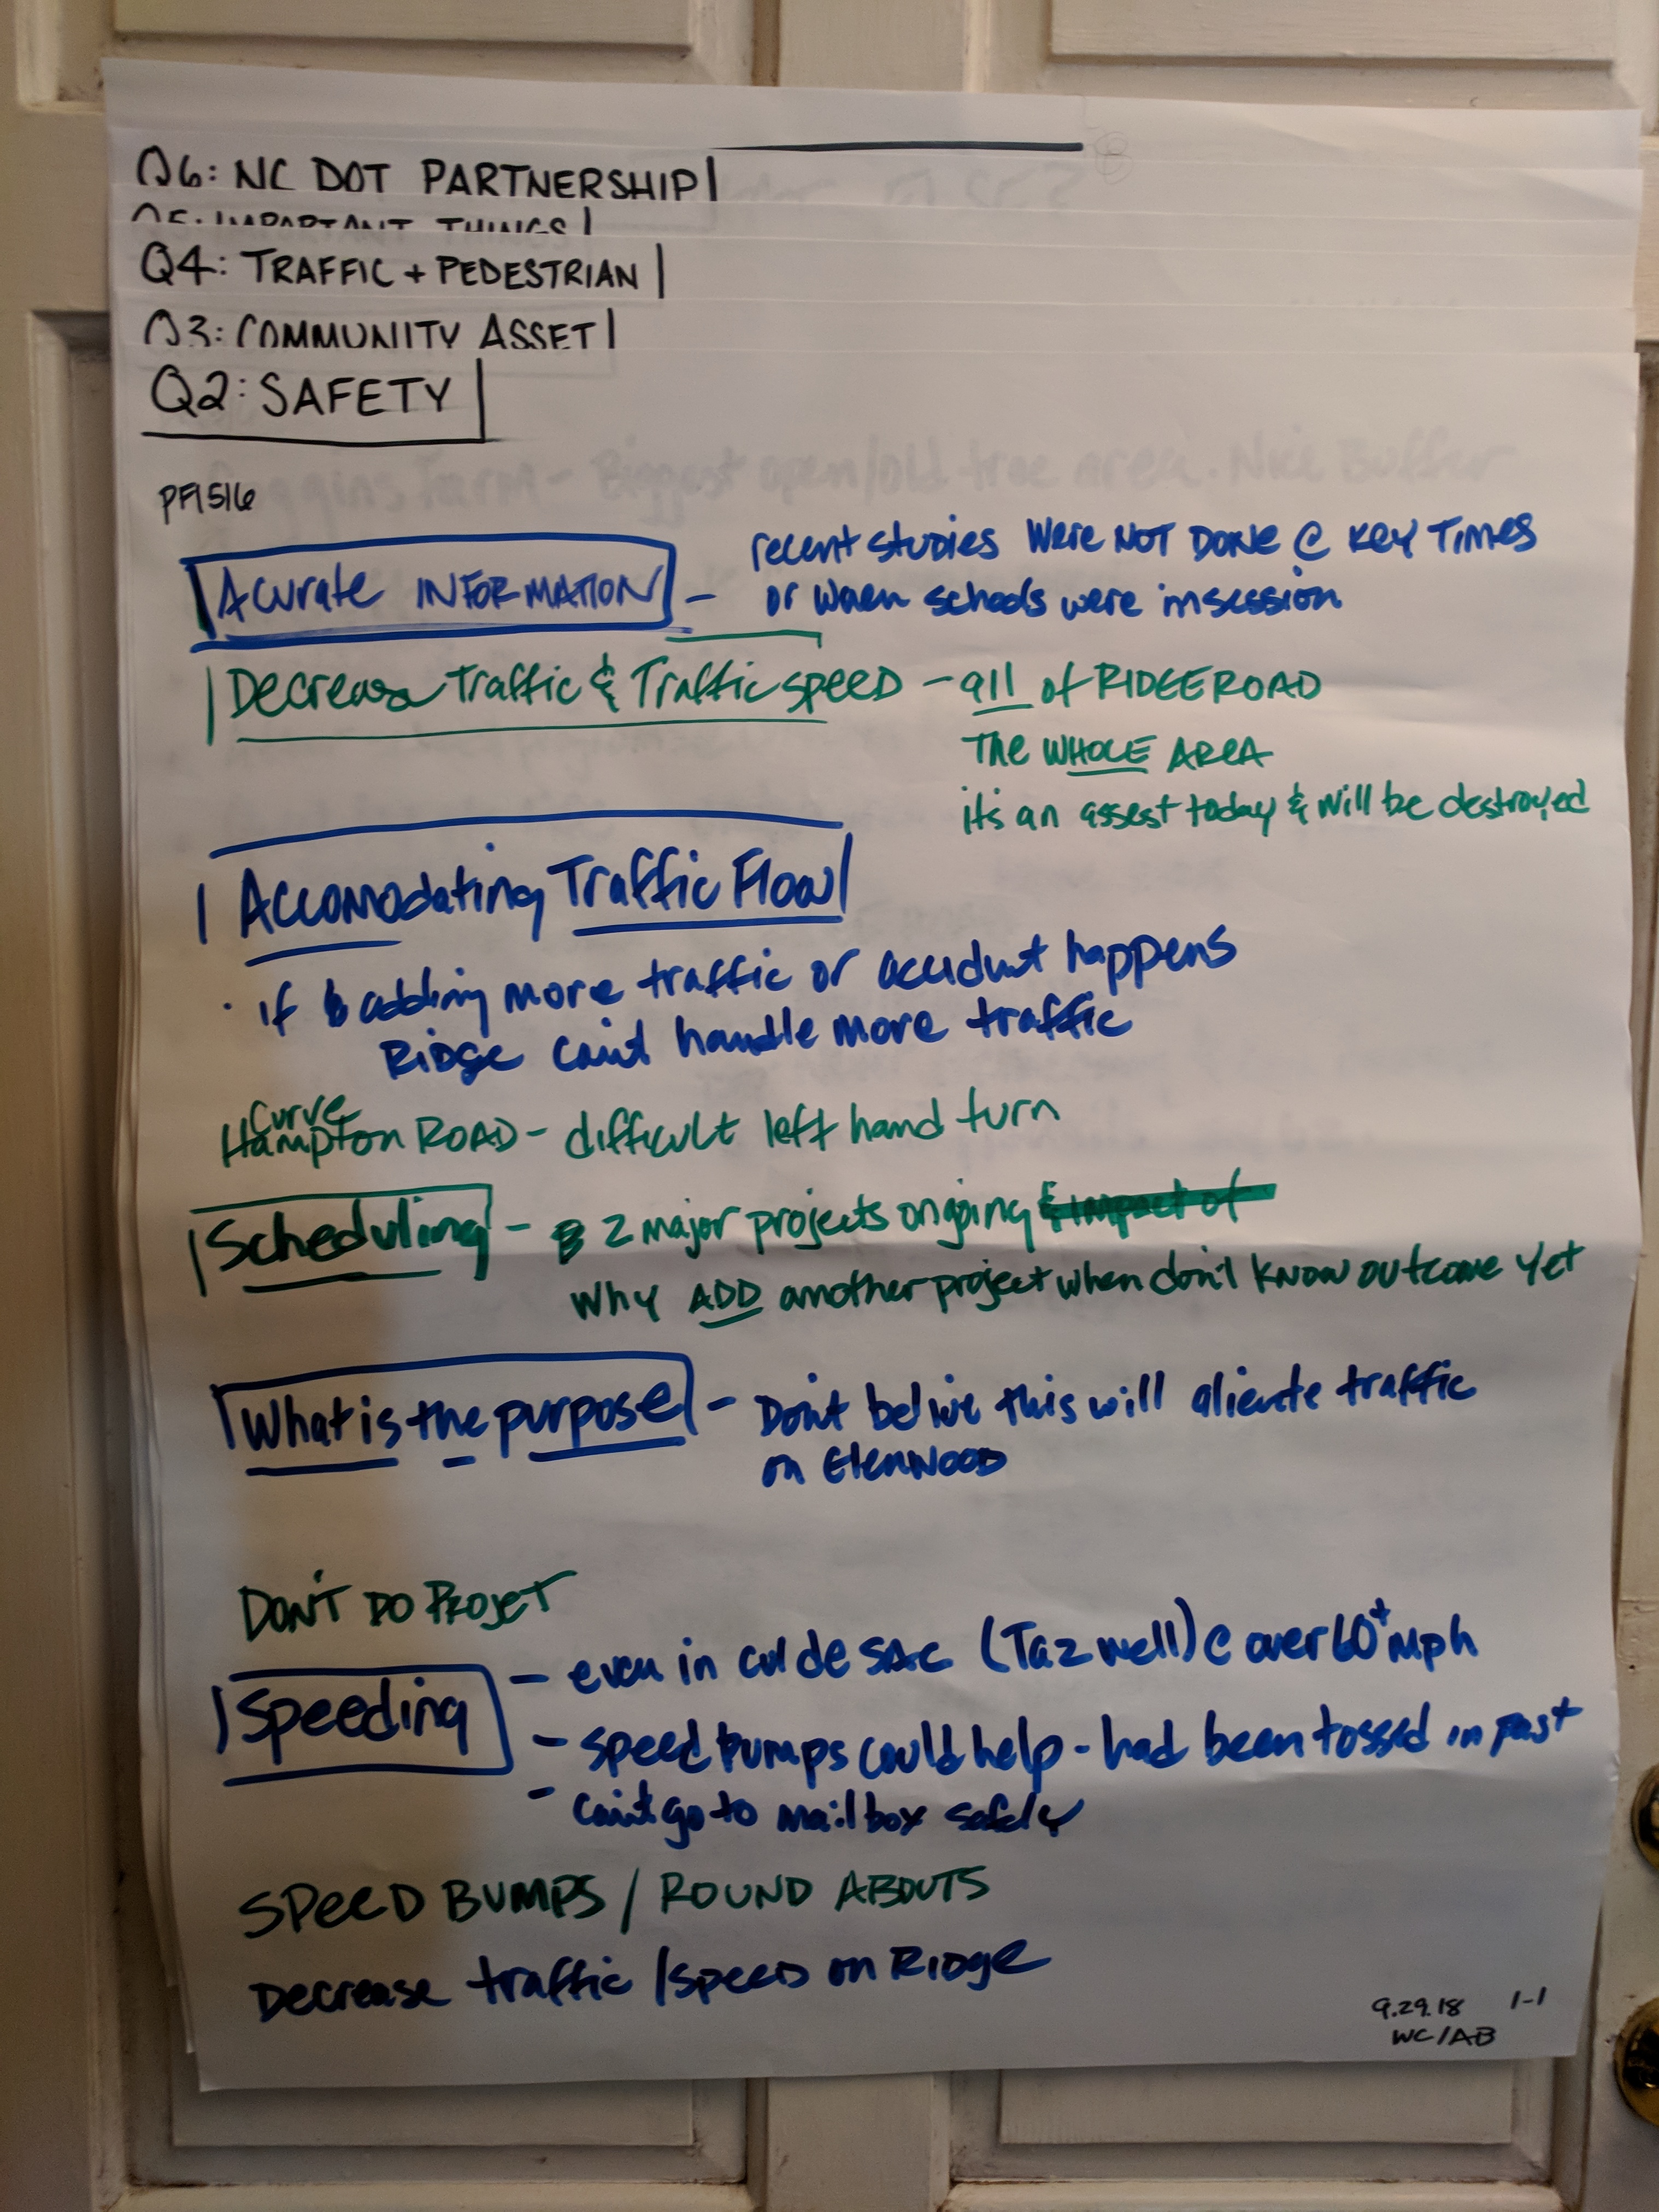 Q6: NC DOT PARTNERSHIP
Q5: IMPORTANT THINGS
Q4: TRAFFIC + PEDESTRIAN
Q3: COMMUNITY ASSET
Q2: SAFETY
Acurate INFORMATION - recent studies Were NOT DONE @ KEY TIMES
or when schools were in session
Decrease Traffic & Traffic SPEED - all of RIDGE ROAD
The WHOLE AREA
it's an assest today & will be destroyed
Accomodating Traffic Flow
· if adding more traffic or accident happens
Ridge can't handle more traffic
Curve
Hampton ROAD - difficult left hand turn
Scheduling - 2 major projects ongoing & impact of
Why ADD another project when don't know outcome yet
What is the purpose - Don't belive this will aliente traffic
on Glenwood
DON'T DO PROJET
Speeding - even in cul de SAC (Tazwell) @ over 60+ mph
- speed bumps could help - had been tossed in past
- can't go to mailbox safely
SPEED BUMPS / ROUND ABOUTS
Decrease traffic / speed on Ridge
9.29.18 1-1
WC/AB